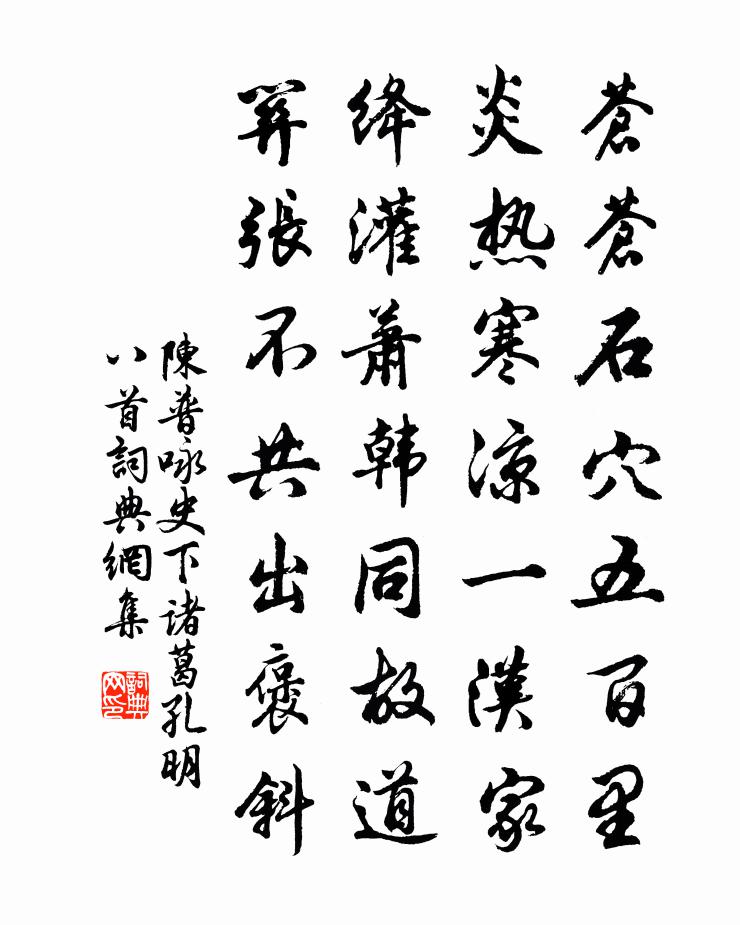 蒼蒼石穴五百里
炎热寒涼一漢家
絳灌蕭韩同故道
關張不共出褒斜
陳普咏史下诸葛孔明
八首詞典網集
詞典
网印